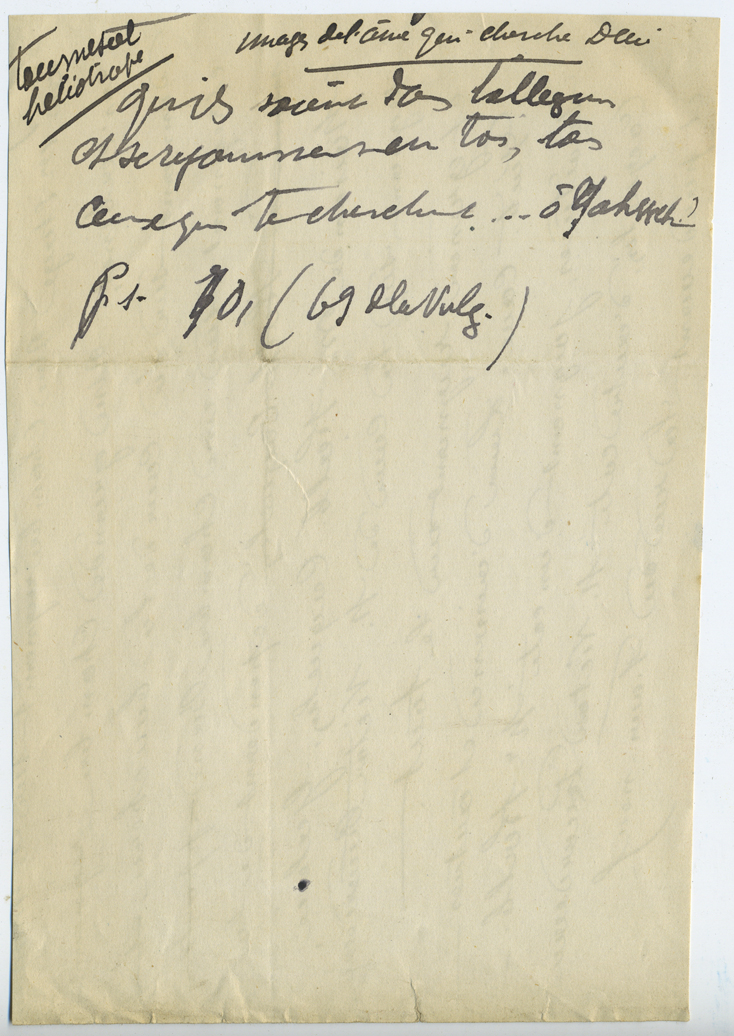 tournesol
héliotrope
images de l'âme qui cherche Dieu
Qu'ils soient dans l'allégresse
et se réjouissent en toi, tous
ceux qui te cherchent ... ô
Ps. 70, (69 de la Vulg.)